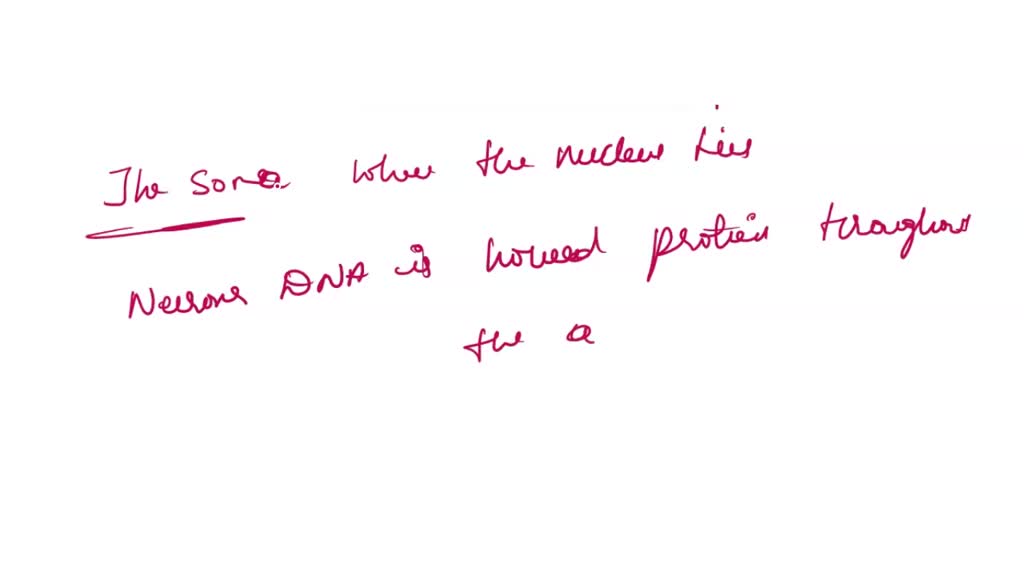 The soma where the nucleus lies
Neurons DNA is housed protien throughout
the a